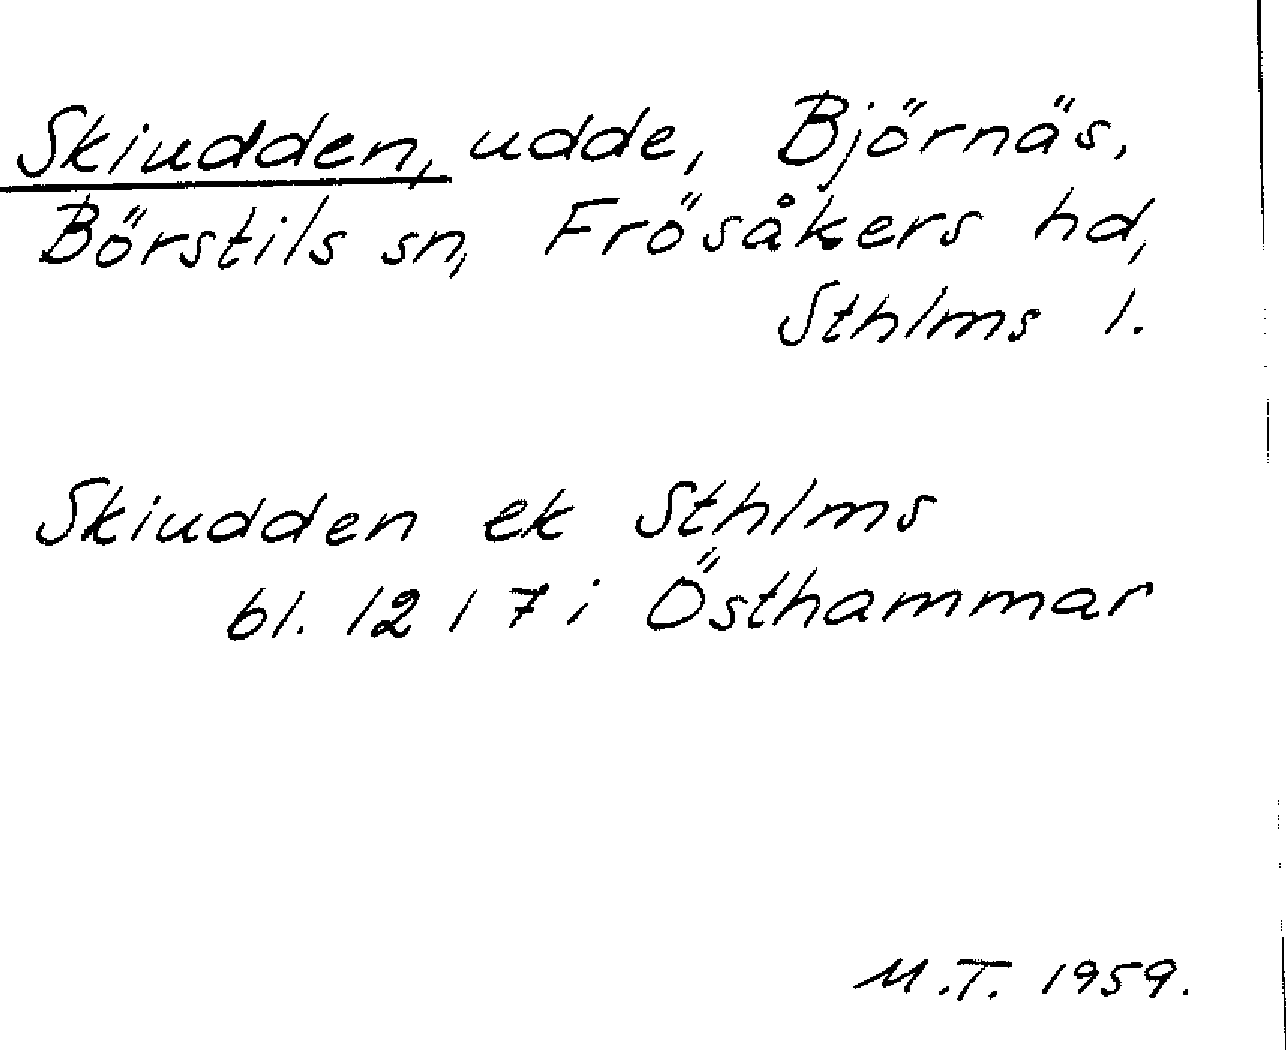 Skiudden, udde, Björnäs,
Börstils sn, Frösåkers hd,
Sthlms l.
Skiudden ek Sthlms
bl. 12 1 7 i Östhammar
M.T. 1959.